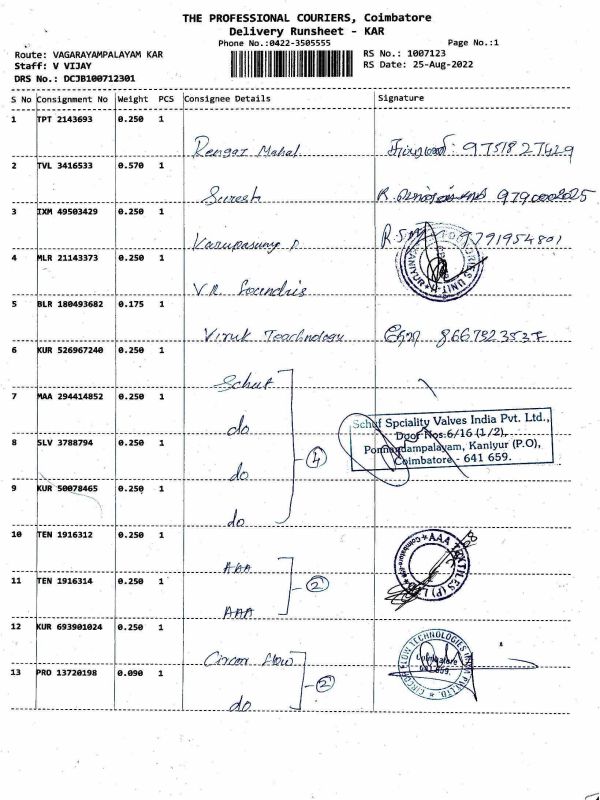 THE PROFESSIONAL COURIERS, Coimbatore
Delivery Runsheet - KAR
Phone No.:0422-3505555
Page No.:1
Route: VAGARAYAMPALAYAM KAR
RS No.: 1007123
Staff: V VIJAY
RS Date: 25-Aug-2022
DRS No.: DCJB100712301
S No Consignment No Weight PCS Consignee Details Signature
1 TPT 2143693 0.250 1
Rengaz Mahal : 9751827429
2 TVL 3416533 0.570 1
Suresh R.
3 IXM 49503429 0.250 1
Karupasamy R.S.M 9791954801
4 MLR 21143373 0.250 1
V.R.
5 BLR 180493682 0.175 1
Viruk Teachnology 8667923537
6 KUR 526967240 0.250 1
Schuf
7 MAA 294414852 0.250 1
do
Schuf Spciality Valves India Pvt. Ltd.,
Door Nos:6/16 (1/2),
8 SLV 3788794 0.250 1
Ponnandampalayam, Kaniyur (P.O),
Coimbatore - 641 659.
do
4
9 KUR 50078465 0.250 1
do
10 TEN 1916312 0.250 1
AAA
AAA TEXTILES (P) LTD
11 TEN 1916314 0.250 1
2
AAA
12 KUR 693901024 0.250 1
Circor flow
CIRCOR FLOW TECHNOLOGIES INDIA PVT LTD.
Coimbatore
641 659.
13 PRO 13720198 0.090 1
2
do